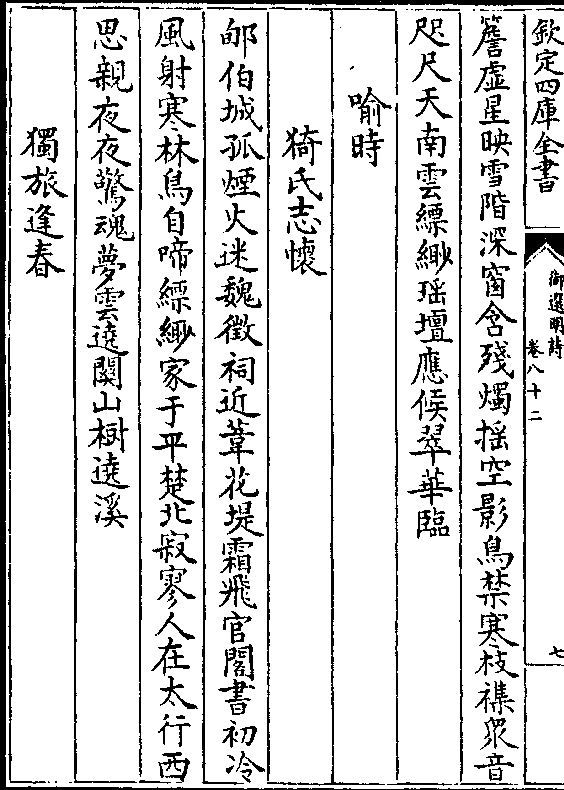 欽定四庫全書
御選明詩
卷八十二
七
簷虛星映雪階深窗含殘燭揺空影鳥禁寒枝襍衆音
咫尺天南雲縹緲瑶壇應候翠華臨
喻時
猗氏志懷
郇伯城孤煙火迷魏徵祠近葦花堤霜飛官閣書初冷
風射寒林鳥自啼縹緲家于平楚北寂寥人在太行西
思親夜夜驚魂夢雲遶關山樹遶溪
獨旅逢春